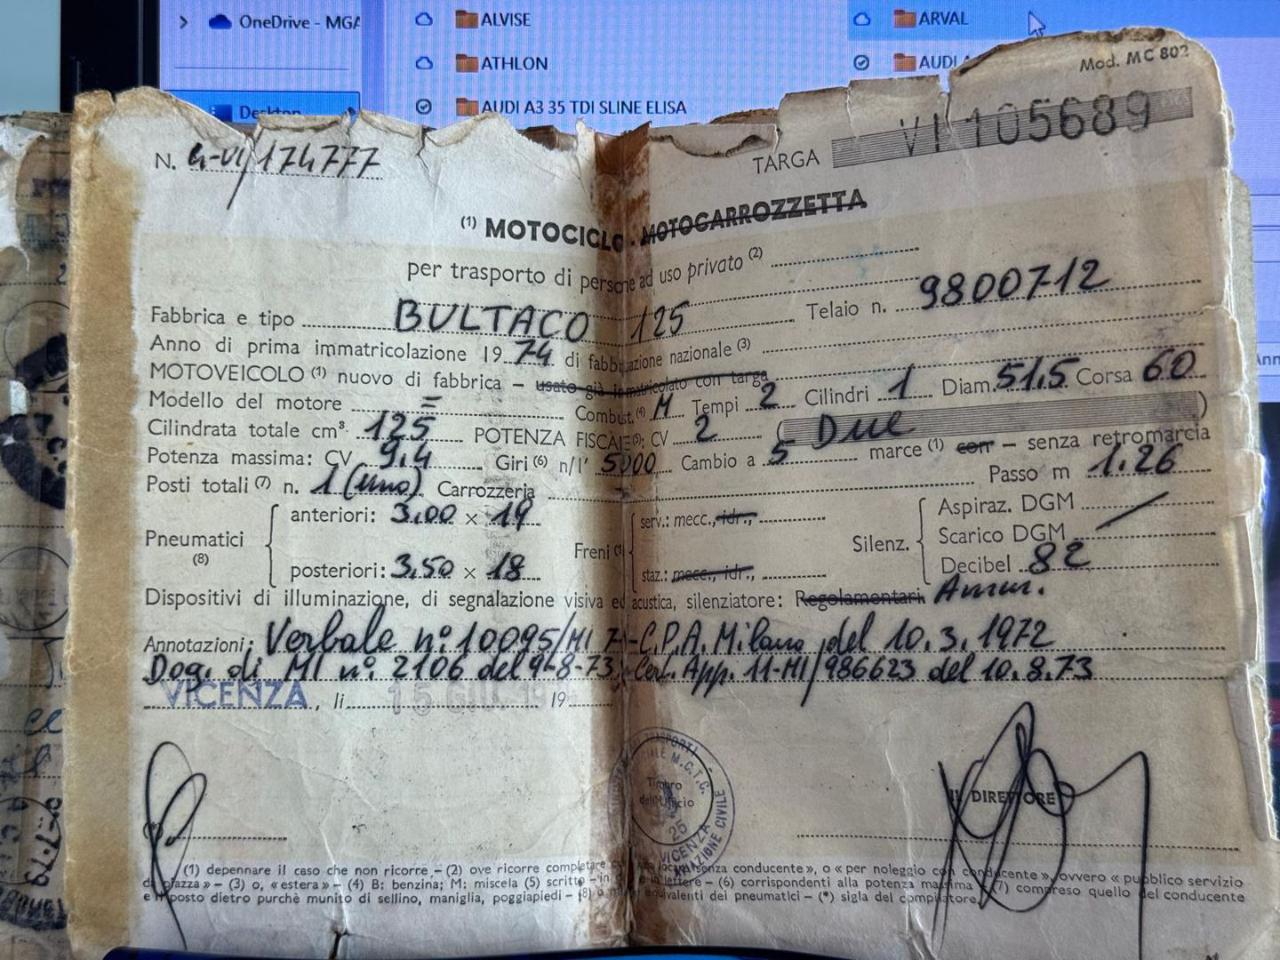 OneDrive - MGA
ALVISE
ARVAL
ATHLON
AUDI A
Desktop
AUDI A3 35 TDI SLINE ELISA
Mod. MC 802
N. 4-VI/174777
TARGA VI 105689
(1) MOTOCICLO - MOTOCARROZZETTA
per trasporto di persone ad uso privato (2)
Fabbrica e tipo BULTACO 125 Telaio n. 9800712
Anno di prima immatricolazione 19 74 di fabbricazione nazionale (3)
MOTOVEICOLO (1) nuovo di fabbrica – usato già immatricolato con targa
Modello del motore = Combust. (4) M Tempi 2 Cilindri 1 Diam. 51,5 Corsa 60
Cilindrata totale cm³ 125 POTENZA FISCALE (5): CV 2 ( Due )
Potenza massima: CV 9,4 Giri (6) n/1' 5000 Cambio a 5 marce (1) con – senza retromarcia
Posti totali (7) n. 1 (uno) Carrozzeria Passo m 1.26
Pneumatici (8)
anteriori: 3,00 × 19
posteriori: 3,50 × 18
Freni
serv.: mecc., idr.,
staz.: mecc., idr.,
Silenz.
Aspiraz. DGM
Scarico DGM
Decibel 82
Dispositivi di illuminazione, di segnalazione visiva ed acustica, silenziatore: Regolamentari Amm.
Annotazioni: Verbale n° 10095/MI 7 - C.P.A. Milano del 10.3.1972
Dog. di MI n° 2106 del 9-8-73, Cert. App. 11-MI/986623 del 10.8.73
VICENZA, li 15 GIU. 19 19
Timbro
dell'Ufficio
M.C.T.C.
VICENZA
IL DIRETTORE
(1) depennare il caso che non ricorre – (2) ove ricorre completare senza conducente», o «per noleggio con conducente», ovvero «pubblico servizio
da piazza» – (3) o, «estera» – (4) B: benzina; M: miscela (5) scritto in lettere – (6) corrispondenti alla potenza massima (7) compreso quello del conducente
e il posto dietro purchè munito di sellino, maniglia, poggiapiedi – (8) equivalenti dei pneumatici – (*) sigla del compilatore.